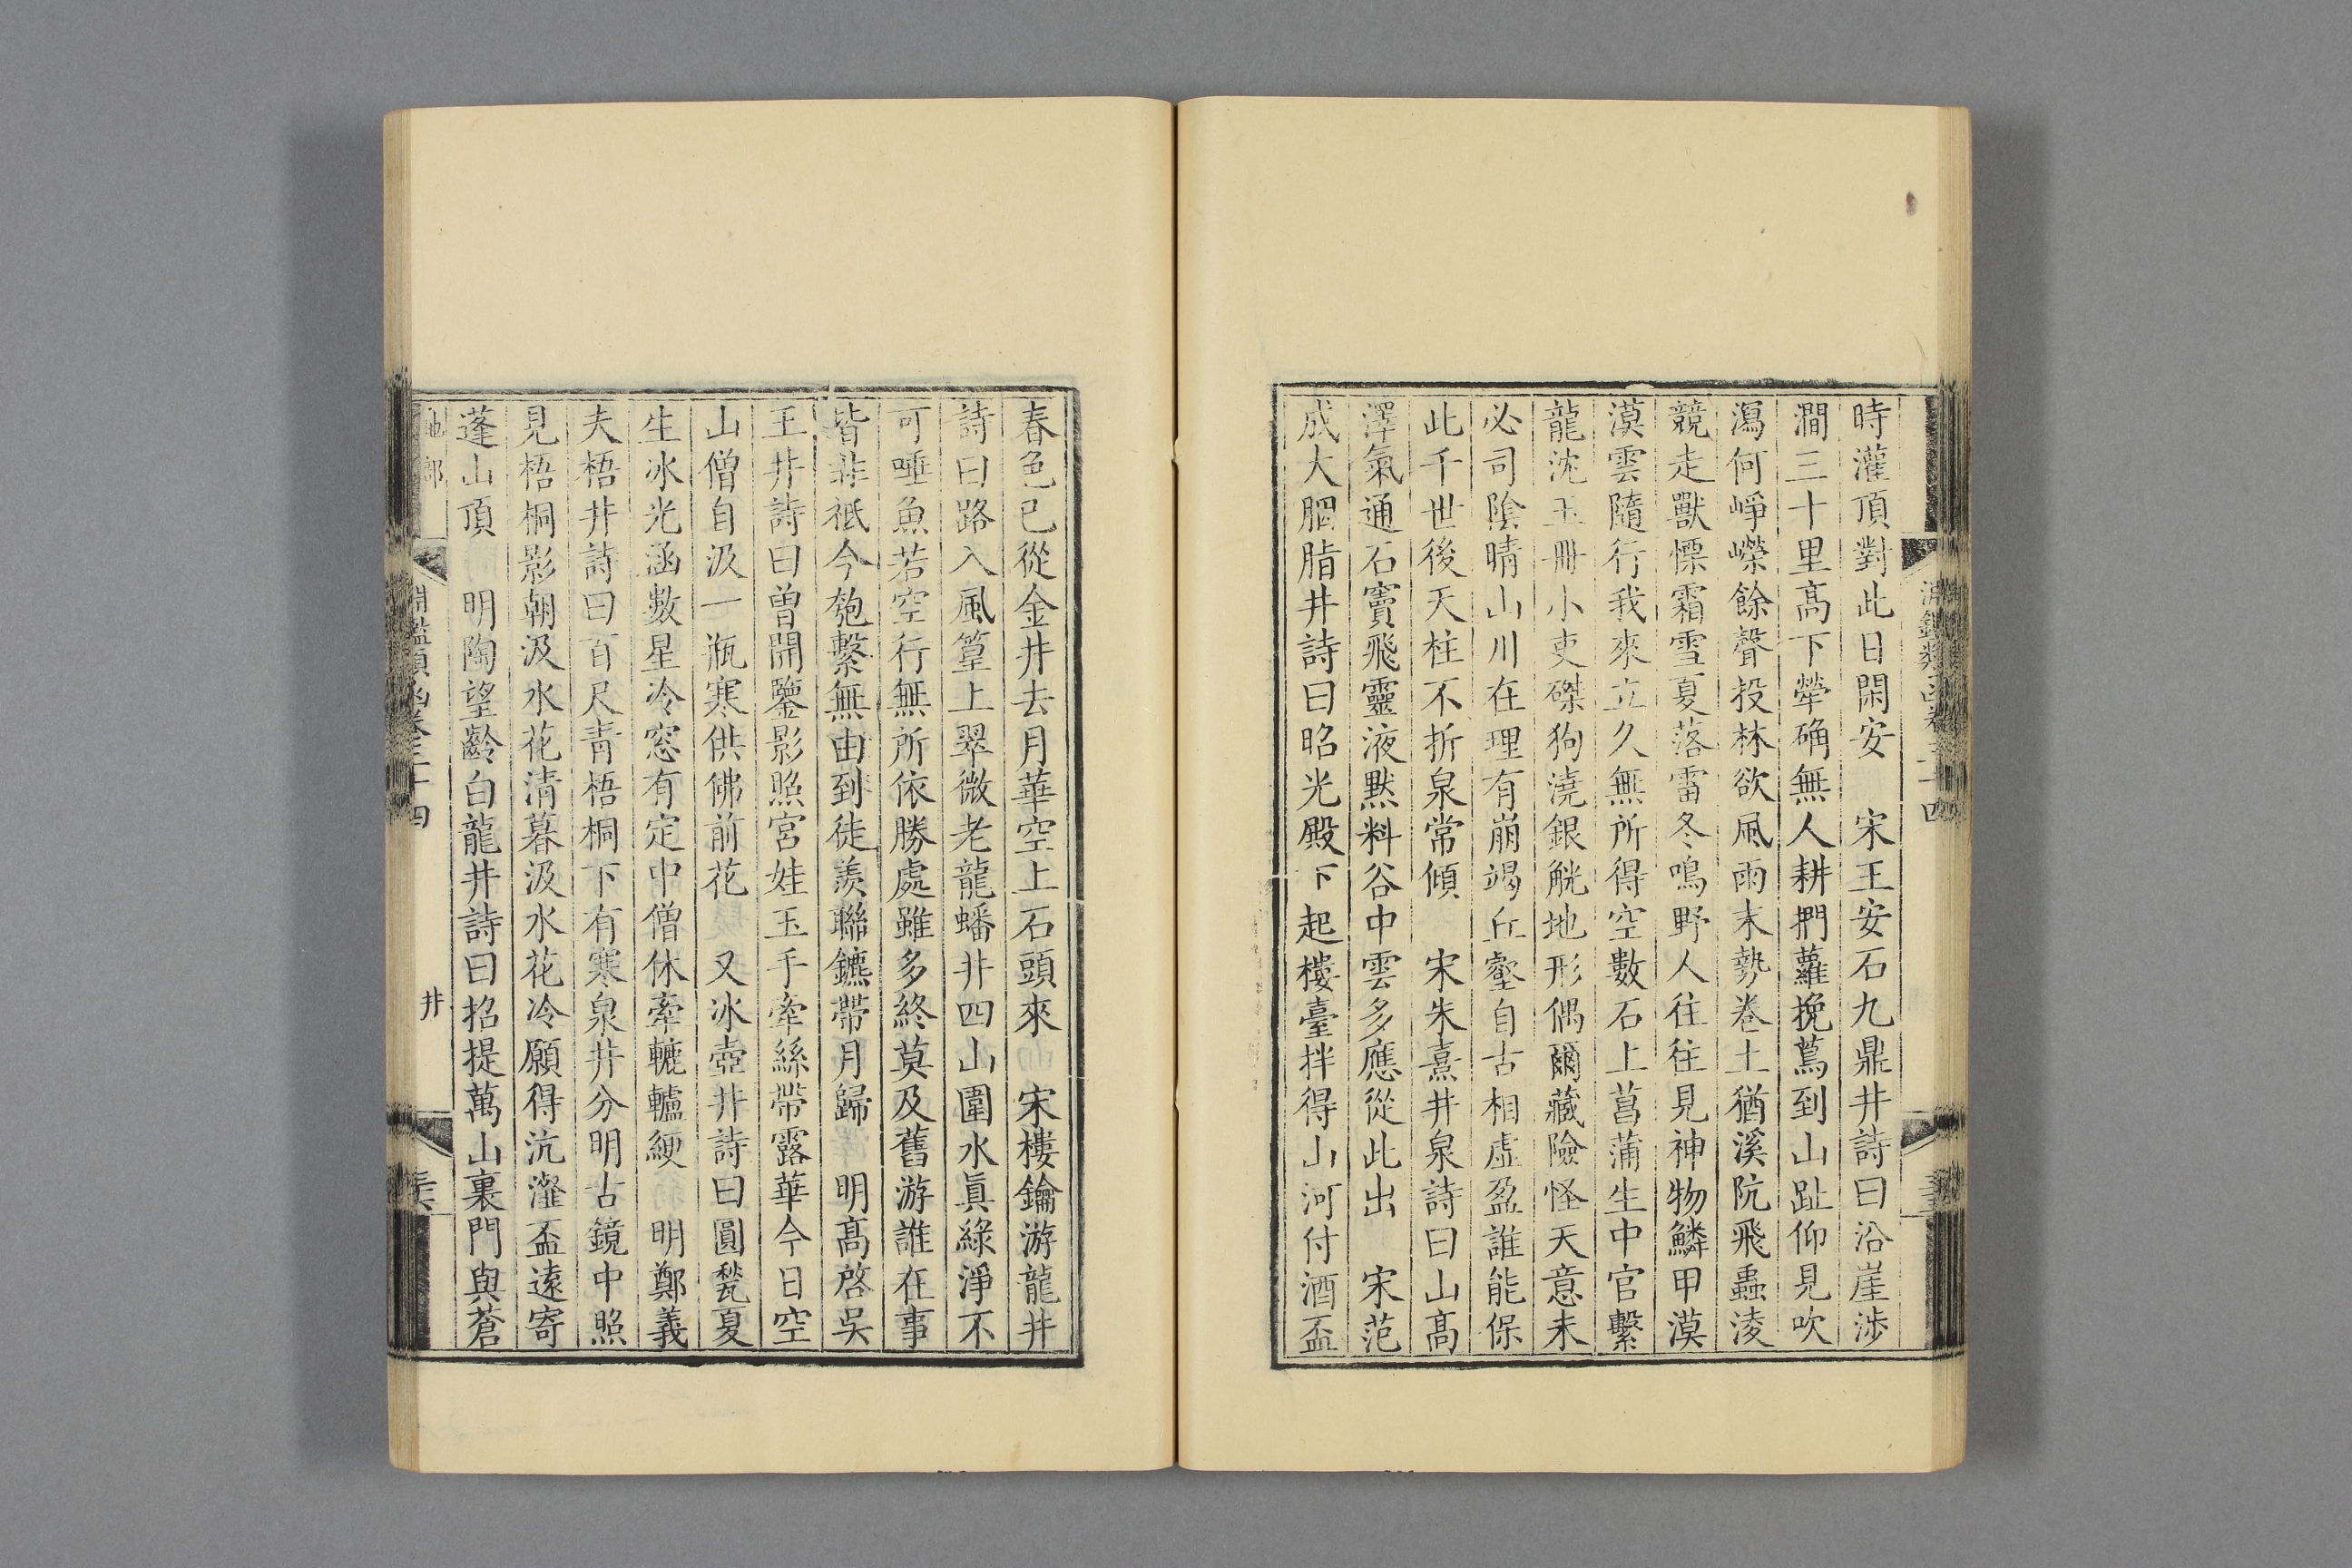 時灌頂對此日閑安　宋王安石九鼎井詩曰沿崖渉
澗三十里高下犖确無人耕捫蘿挽蔦到山趾仰見吹
瀉何崢嶸餘聲投林欲風雨末勢卷土猶溪阬飛蟲淩
競走獸慄霜雪夏落雷冬鳴野人往往見神物鱗甲漠
漠雲隨行我來立久無所得空數石上菖蒲生中官繫
龍沈玉冊小吏磔狗澆銀觥地形偶爾藏險怪天意未
必司陰晴山川在理有崩竭丘壑自古相虛盈誰能保
此千世後天柱不折泉常傾　宋朱熹井泉詩曰山高
澤氣通石竇飛靈液黙料谷中雲多應從此出　宋范
成大胭脂井詩曰昭光殿下起樓臺拌得山河付酒盃
春色已從金井去月華空上石頭來　宋樓鑰游龍井
詩曰路入風篁上翠微老龍蟠井四山圍水眞綠淨不
可唾魚若空行無所依勝處雖多終莫及舊游誰在事
皆非祇今匏繫無由到徒羨聯鑣帶月歸　明高啓吳
王井詩曰曾開鑒影照宮娃玉手牽絲帶露華今日空
山僧自汲一瓶寒供佛前花　又冰壺井詩曰圓甃夏
生冰光涵數星冷窓有定中僧休牽轆轤綆　明鄭義
夫梧井詩曰百尺靑梧桐下有寒泉井分明古鏡中照
見梧桐影朝汲水花清暮汲水花冷願得沆瀣盃遠寄
蓬山頂　明陶望齡白龍井詩曰招提萬山裏門與蒼
地部　淵鑑類函卷三十四　井